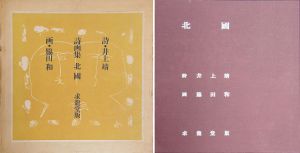 詩・井上靖
詩画集 北國
求龍堂版
画・脇田和
北國
詩 井上靖
画 脇田和
求龍堂版